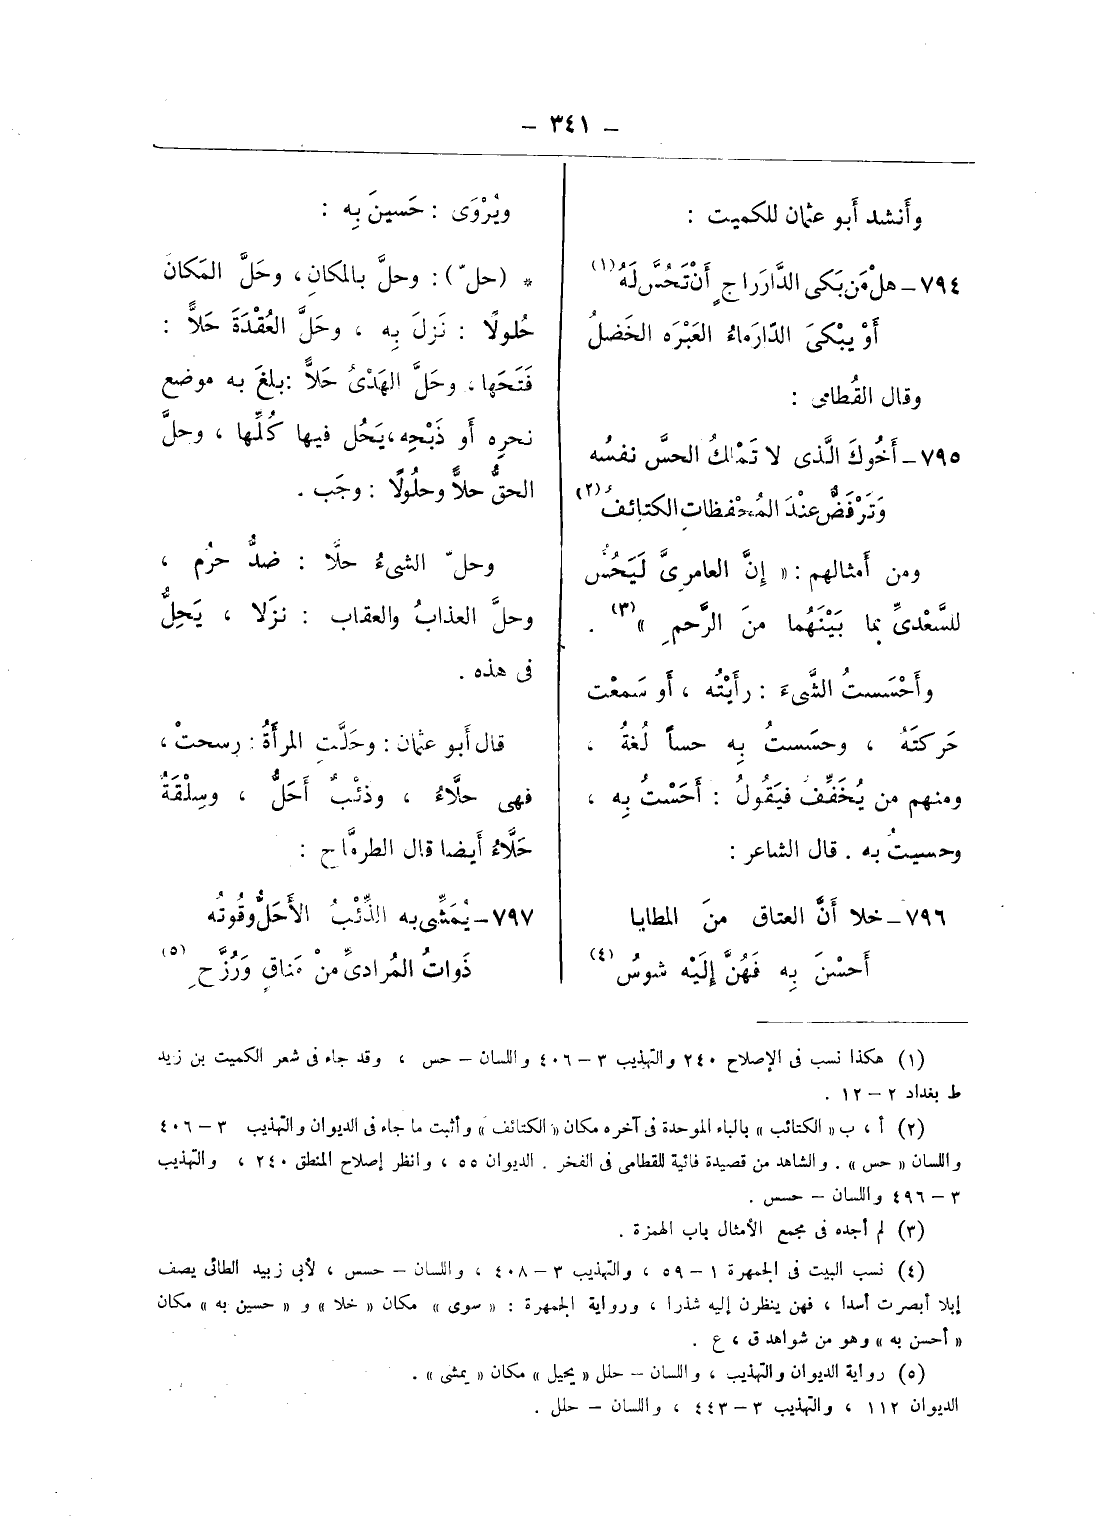 – ٣٤١ –
وأَنشد أَبو عثمان للكميت :
٧٩٤ – هلْ مَن بَكى الدَّارَ راجٍ أَنْ تَحُسَّ لَهُ (١)
أَوْ يبْكىَ الدّارَ ماءُ العَبْرَه الخَضلُ
وقال القُطامى :
٧٩٥ – أَخُوكَ الَّذى لا تَمْلكُ الحسَّ نفسُه
وَتَرْفَضُّ عنْدَ المُحْفظاتِ الكتائفُ (٢)
ومن أَمثالهم : « إِنَّ العامرىَّ لَيَحُسُّ
للسَّعْدىِّ بما بَيْنَهُما منَ الرَّحمِ » (٣) .
وأَحْسَستُ الشَّىءَ : رأَيْتُه ، أَو سَمعْت
حَركتَهُ ، وحسَستُ بِه حساً لُغةُ ،
ومنهم من يُخَفِّفُ فيَقُولُ : أَحَسْتُ بِه ،
وحسيتُ به . قال الشاعر :
٧٩٦ – خلا أَنَّ العتاق منَ المطايا
أَحسْنَ بِه فَهُنَّ إِلَيْه شوسُ (٤)
ويُرْوَى : حَسينَ بِه :
* (حل ّ) : وحلَّ بالمكانِ ، وحَلَّ المَكانَ
حُلولًا : نَزلَ بِه ، وحَلَّ العُقْدَةَ حَلاًّ :
فَتَحَها ، وحَلَّ الهَدْىُ حَلاًّ : بلغَ به موضع
نحرِه أَو ذَبْحِه ، يَحُل فيها كُلِّها ، وحلَّ
الحقُّ حلاًّ وحلُولًا : وجَب .
وحل ّ الشىءُ حلًّا : ضدُّ حرُم ،
وحلَّ العذابُ والعقاب : نزَلا ، يَحِلُّ
فى هذه .
قال أَبو عثمان : وحَلَّتِ المرأَةُ : رسحتْ ،
فهى حلَّاءُ ، وذئْبٌ أَحَلُّ ، وسِلْقَةٌ
حَلَّاءُ أَيضا قال الطرمَّاح :
٧٩٧ – يُمَشِّى به الذِّئْبُ الأَحَلُّ وقُوتُه
ذَواتُ المُرادىَّ منْ مَناقٍ وَرُزَّحِ (٥)
(١) هكذا نسب فى الإصلاح ٢٤٠ والتهذيب ٣ – ٤٠٦ واللسان – حس ، وقد جاء فى شعر الكميت بن زيد
ط بغداد ٢ – ١٢ .
(٢) أ ، ب « الكتائب » بالباء الموحدة فى آخره مكان « الكتائف » وأثبت ما جاء فى الديوان والتهذيب ٣ – ٤٠٦
واللسان « حس » . والشاهد من قصيدة فائية للقطامى فى الفخر . الديوان ٥٥ ، وانظر إصلاح المنطق ٢٤٠ ، والتهذيب
٣ – ٤٩٦ واللسان – حسس .
(٣) لم أجده فى مجمع الأمثال باب الهمزة .
(٤) نسب البيت فى الجمهرة ١ – ٥٩ ، والتهذيب ٣ – ٤٠٨ ، واللسان – حسس ، لأبى زبيد الطائى يصف
إبلا أبصرت أسدا ، فهن ينظرن إليه شذرا ، ورواية الجمهرة : « سوى » مكان « خلا » و « حسين به » مكان
« أحسن به » وهو من شواهد ق ، ع .
(٥) رواية الديوان والتهذيب ، واللسان – حلل « يحيل » مكان « يمشى » .
الديوان ١١٢ ، والتهذيب ٣ – ٤٤٣ ، واللسان – حلل .